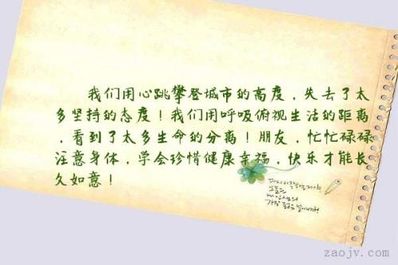 我们用心跳攀登城市的高度，失去了太
多坚持的态度！我们用呼吸俯视生活的距离
，看到了太多生命的分离！朋友，忙忙碌碌
注意身体，学会珍惜健康幸福，快乐才能长
久如意！
zaojv.com